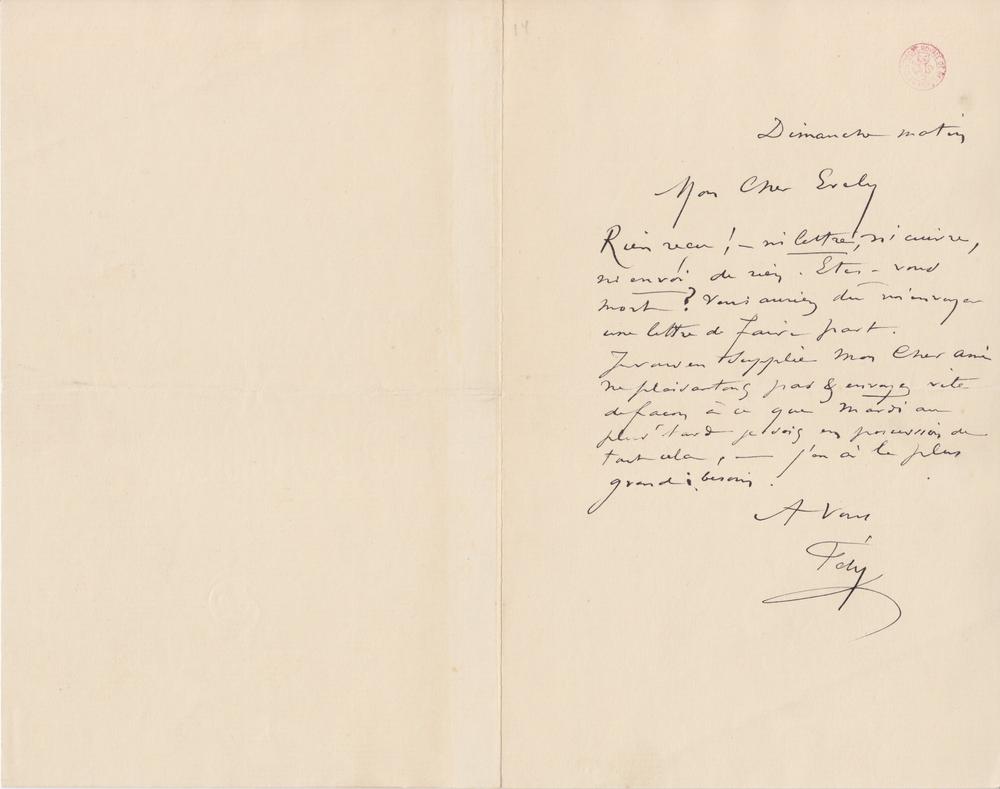 14
Dimanche matin
Mon Cher Evely
Rien reçu ! — ni lettre, ni cuivre,
ni envoi de rien. Etes-vous
mort ? Vous auriez dû m'envoyer
une lettre de faire part.
Je vous en supplie Mon Cher ami
ne plaisantons pas & envoyez vite
de façon à ce que Mardi au
plus tard je sois en possession de
tout cela, — j'en ai le plus
grand besoin.
A Vous
Fély